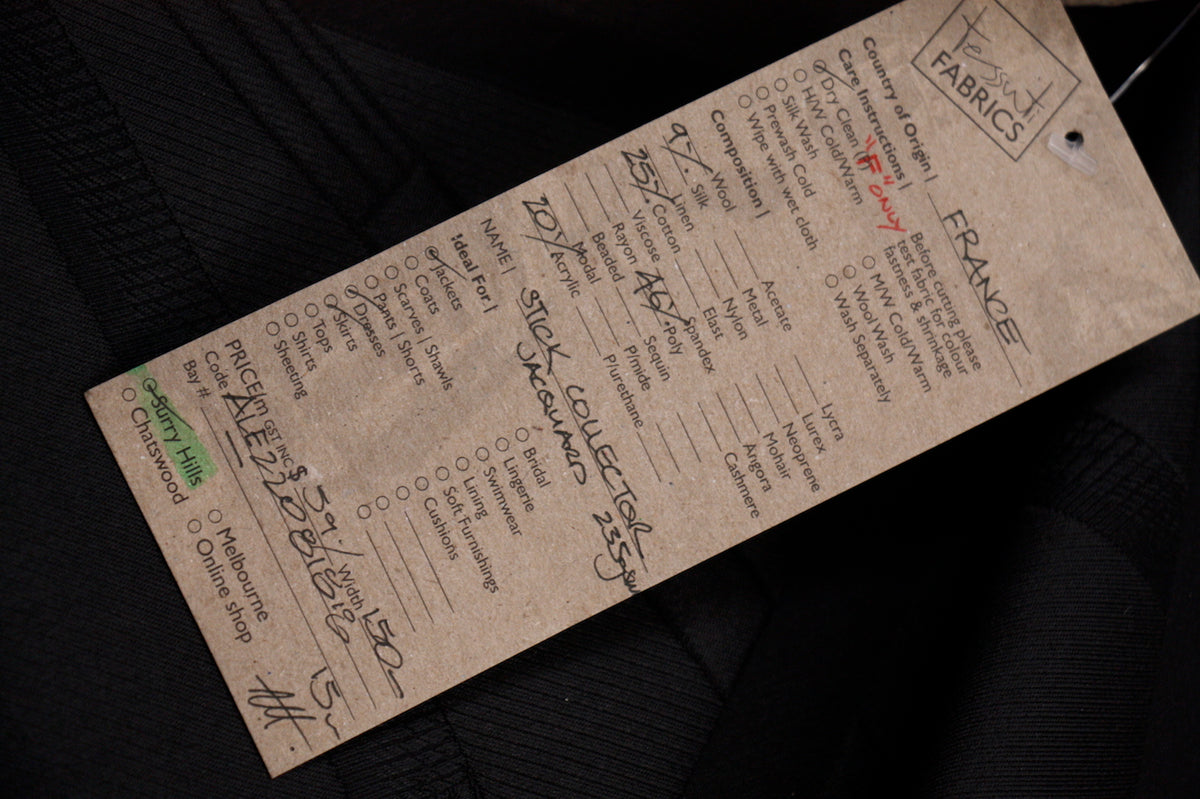 tessuti
FABRICS
Country of Origin | FRANCE
Care Instructions | Before cutting please
test fabric for colour
fastness & shrinkage
Dry Clean (P) "F" ONLY
H/W Cold/Warm
Silk Wash
Prewash Cold
Wipe with wet cloth
M/W Cold/Warm
Wool Wash
Wash Separately
Composition |
Wool
9% Silk
Linen
25% Cotton
Viscose
Rayon
Beaded
Modal
20% Acrylic
Acetate
Metal
Nylon
Elast
Spandex
46% Poly
Sequin
P/mide
P/urethane
Lycra
Lurex
Neoprene
Mohair
Angora
Cashmere
NAME | STICK COLLECTOR
JACQUARD 235gsm
Ideal For |
Jackets
Coats
Scarves | Shawls
Pants | Shorts
Dresses
Skirts
Tops
Shirts
Sheeting
Bridal
Lingerie
Swimwear
Lining
Soft Furnishings
Cushions
PRICE|m GST INC $ 59./ Width 150
Code ALE
Bay #
15m
Surry Hills
Chatswood
Melbourne
Online shop